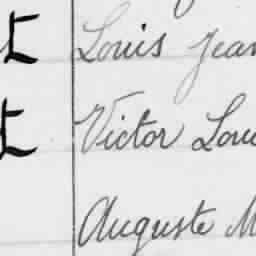 Louis Jean
Victor Lou
Auguste M